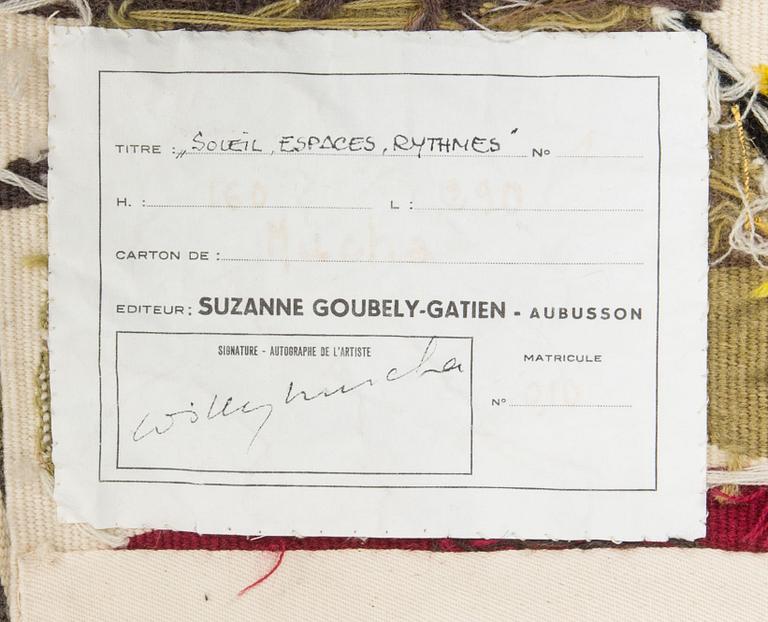 TITRE : „SOLEIL, ESPACES, RYTHMES" No
H. : L :
CARTON DE :
EDITEUR: SUZANNE GOUBELY-GATIEN - AUBUSSON
SIGNATURE - AUTOGRAPHE DE L'ARTISTE
MATRICULE
willy mucha
N°